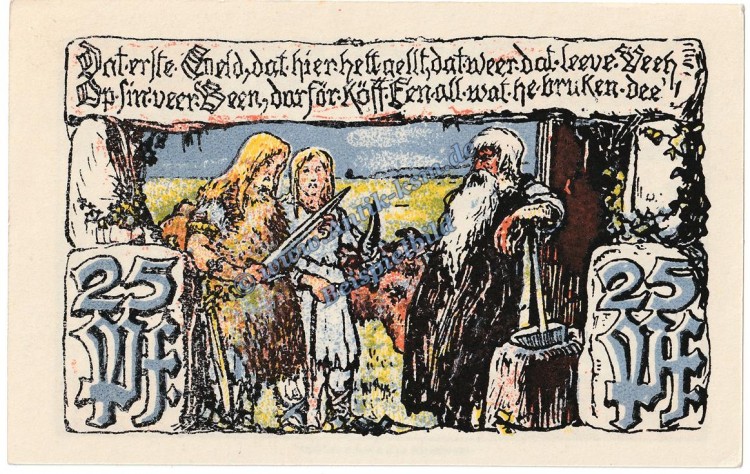 Dat erste Geld, dat hier hett gellt, dat weer dat leeve Veeh
Op sin veer Been, dorför köfft Een all wat he bruken dee!
25
Pf.
25
Pf
Beispielbild